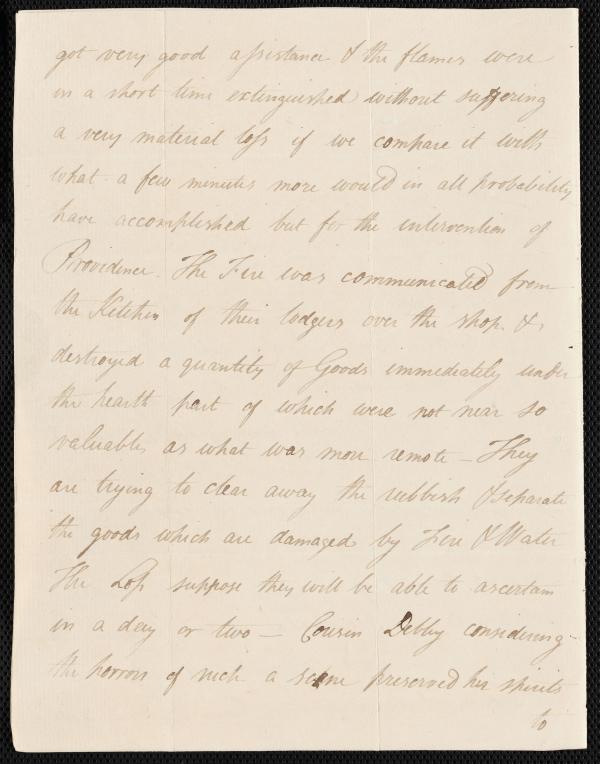 got very good assistance & the flames were
in a short time extinguished without suffering
a very material loss if we compare it with
what a few minutes more would in all probability
have accomplished but for the intervention of
Providence. The Fire was communicated from
the Kitchen of their lodgers over the shop, &
destroyed a quantity of Goods immediately under
the hearth part of which were not near so
valuable as what was more remote – They
are trying to clear away the rubbish & separate
the goods which are damaged by Fire & Water
The Loss suppose they will be able to ascertain
in a day or two – Cousin Debby considering
the horrors of such a scene preserved her spirits
to